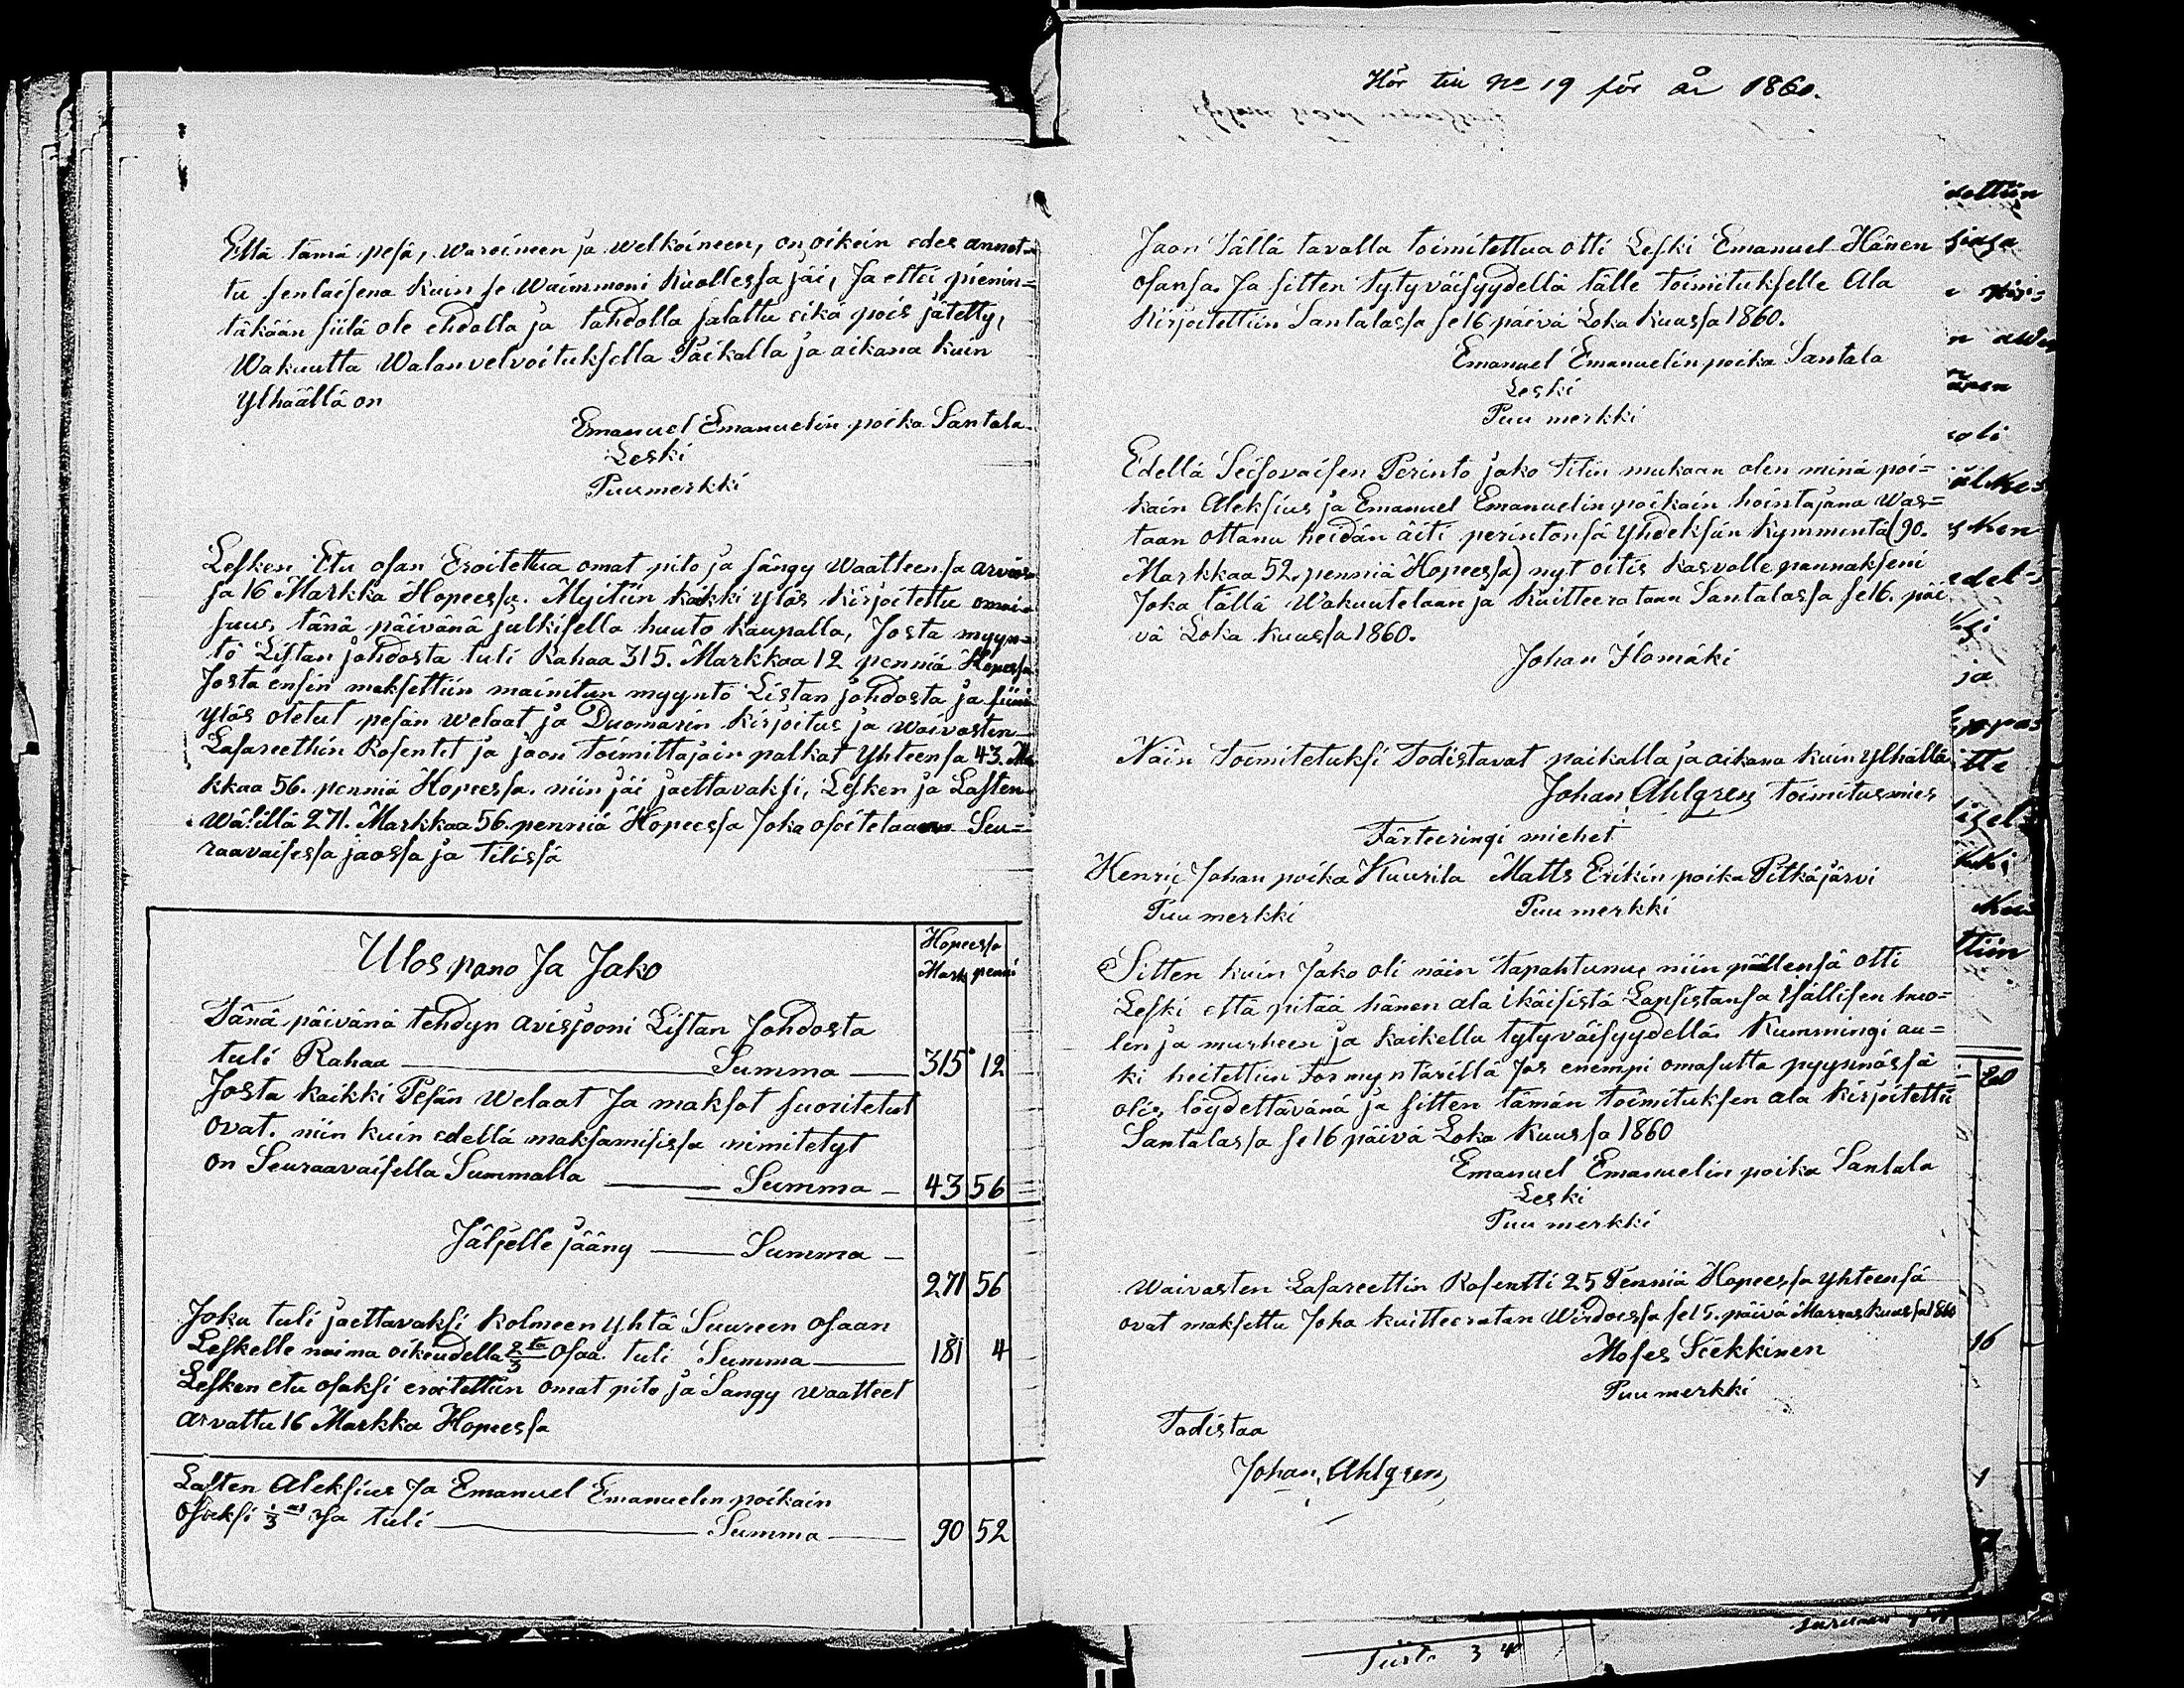 Että tämä pesä, waroineen ja welkoineen, on oikein edes annet=
tu senlaisena kuin se Waimmoni kuollessa jäi, Ja ettei pienin=
täkään siitä ole ehdolla ja tahdolla salattu eikä pois jätetty,
Wakuutta Walan velvoituksella Paikalla ja aikana kuin
Ylhäällä on
Emanuel Emanuelin poika Santala
Leski
Puumerkki
Lesken Etu osan Eroitettua omat pito ja sängy Waatteensa arvos=
sa 16 Markka Hopeessa. Myitiin kaikki ylös kirjoitettu omai=
suus, tänä päivänä julkisella huuto kaupalla, Josta myyn=
tö Listan johdosta tuli Rahaa 315. Markkaa 12 penniä Hopeessa
Josta ensin maksettiin mainitun myyntö Listan johdosta ja siinä
ylös otetut pesän welaat ja Duomarin kirjoitus ja waivasten
Lasareethin Rosentet ja jaon toimittajain palkat Yhteensä 43. Ma
kkaa 56. penniä Hopeessa. niin jäi jaettavaksi, Lesken ja Lasten
Wälillä 271. Markkaa 56. penniä Hopeessa Joka osoitelaan Seu=
raavaisessa jaossa ja Tilissä
Ulos pano Ja Jako
Hopeessa
Mark penni
Tänä päivänä tehdyn Avisjooni Listan Johdosta
tuli Rahaa Summa 315 12
Josta kaikki Pesän Welaat Ja maksot suoritetut
ovat. niin kuin edellä maksamisissa nimitetyt
on Seuraavaisella Summalla Summa 43 56
Jäljelle jääny Summa
271 56
Joka tuli jaettavaksi kolmeen yhtä Suureen osaan
Leskelle naima oikeudella 2/3 ta Osaa tuli Summa 181 4
Lesken etu osaksi eroitettiin omat pito ja Sangy waatteet
arvattu 16 Markka Hopeessa
Lasten Aleksius Ja Emanuel Emanuelin poikain
Osaksi 1/3 tuli Summa 90 52
Hör till No 19 för år 1860.
Jaon Tällä tavalla toimitettua otti Leski Emanuel Hänen
osansa. Ja sitten Tytyväisyydellä tälle toimitukselle Ala
kirjoitettiin Santalassa se 16 päivä Loka kuussa 1860.
Emanuel Emanuelin poika Santala
Leski
Puu merkki
Edellä Seisovaisen Perinto jako Tilin mukaan olen minä poi=
kain Aleksius ja Emanuel Emanuelin poikain hointajana Was=
taan ottanu heidän äiti perintonsä yhdeksän kymmentä (90.
Markkaa 52. penniä Hopeessa) nyt oitis kasvolle pannakseni
Joka tällä Wakuutelaan ja kuitteerataan Santalassa se 16. päi
vä Loka kuussa 1860.
Johan Ilomäki
Näin Toimitetuksi Todistavat paikalla ja aikana kuin ylhällä
Johan Ahlgren toimitusmies
Tärteeringi miehet
Henric Johan poika Kuurila Matts Erikin poika Pitkäjärvi
Puu merkki Puu merkki
Sitten kuin Jako oli näin tapahtunu, niin pällensä otti
Leski että pitää hänen ala ikäisistä Lapsistansa Isällisen huo=
len ja murheen ja kaikella tytyväisyydellä. Kummingi au=
ki heitettiin Formyntärillä Jos enempi omasutta pyynnössä
olis, löydettävänä ja sitten tämän toimituksen ala kirjoitettii
Santalassa se 16 päivä Loka kuussa 1860
Emanuel Emanuelin poika Santala
Leski
Puu merkki
Waivasten Lasareettin Rosentti 25 Penniä Hopeessa yhteensä
ovat maksettu Joka kuitteeratan Windoessa se 15. päivä Marras kuussa 1860
Moses Siekkinen
Puumerkki
Todistaa
Johan Ahlgren
dettiin
oli
edel=
ja
tiin
20
16
1
Siirto 3 4